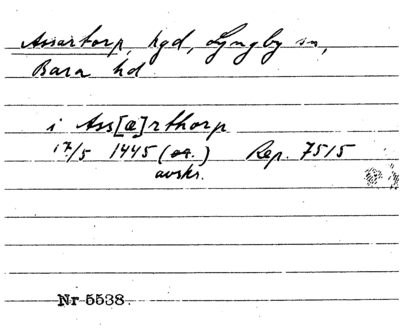 Assartorp, hgd, Lyngby sn,
Bara hd
i Ass[æ]rthorp
17/5 1445 (or.) Rep. 7515
avskr.
Nr 5538.